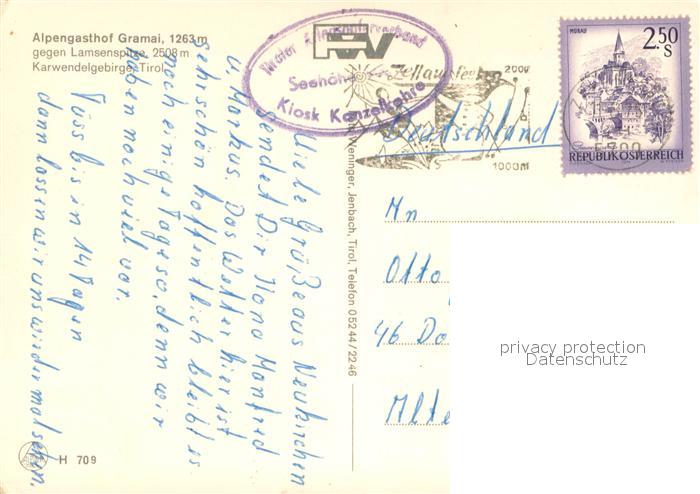 Alpengasthof Gramai, 1263 m
gegen Lamsenspitze, 2508 m
Karwendelgebirge, Tirol
Seehöhe
Kiosk Kanzelkehre
Zell am See
2000
1000m
MURAU
2.50
S
REPUBLIK ÖSTERREICH
5700
Deutschland
Viele Grüße aus Neukirchen
sendet Dir Ilona Manfred
u. Markus. Das Wetter hier ist
sehr schön hoffentlich bleibt es
noch einige Tage so, denn wir
haben noch viel vor.
Tüss bis in 14 Tagen
dann lassen wir uns wieder mal sehen.
Weninger, Jenbach, Tirol, Telefon 05244/2246
Otto
46 Do
Alte
privacy protection
Datenschutz
H 709